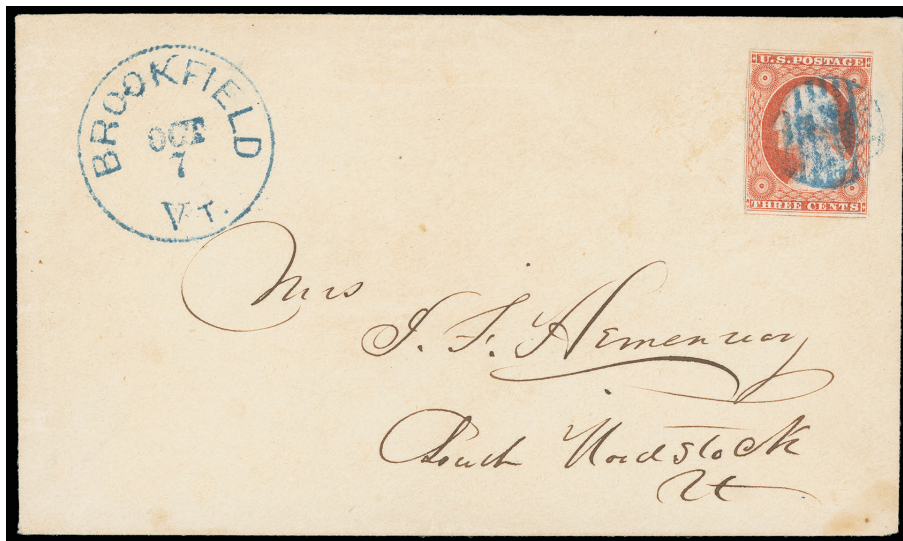 BROOKFIELD
OCT
7
VT.
U.S. POSTAGE
THREE CENTS
Mrs
J. F. Hemenway
South Woodstock
Vt